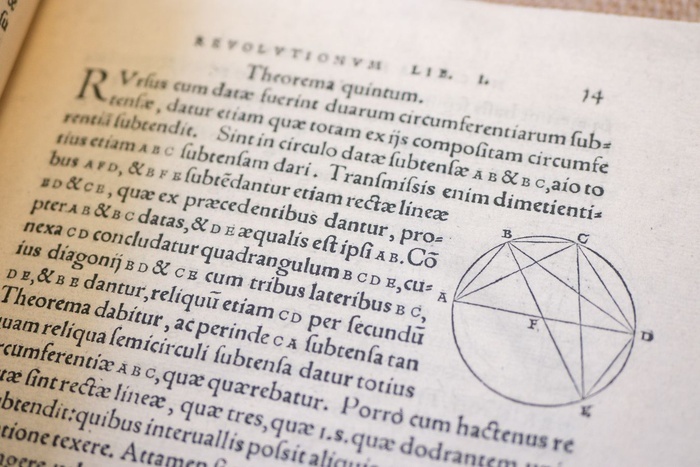 REVOLVTIONVM LIB. I.
14
Theorema quintum.
RVrſus cum datæ fuerint duarum circumferentiarum ſub⸗
tenſæ, datur etiam quæ totam ex ijs compoſitam circumfe
rentiā ſubtendit. Sint in circulo datæ ſubtenſæ AB & BC, aio to
tius etiam ABC ſubtenſam dari. Tranſmiſsis enim dimetienti⸗
bus AFD, & BFE ſubtēdantur etiam rectæ lineæ
BD & CE, quæ ex præcedentibus dantur, pro⸗
pter AB & BC datas, & DE æqualis eſt ipſi AB. Cō
nexa CD concludatur quadrangulum BCDE, cu⸗
ius diagonij BD & CE cum tribus lateribus BC,
DE, & BE dantur, reliquū etiam CD per ſecundū
Theorema dabitur, ac perinde CA ſubtenſa tan
quam reliqua ſemicirculi ſubtenſa datur totius
cumferentiæ ABC, quæ quærebatur. Porrò cum hactenus re
ſint rectæ lineæ, quæ tres, quæ I.S. quæ dodrantem
btendit: quibus interuallis poſsit
texere. Attamen
B C
A
F
D
E